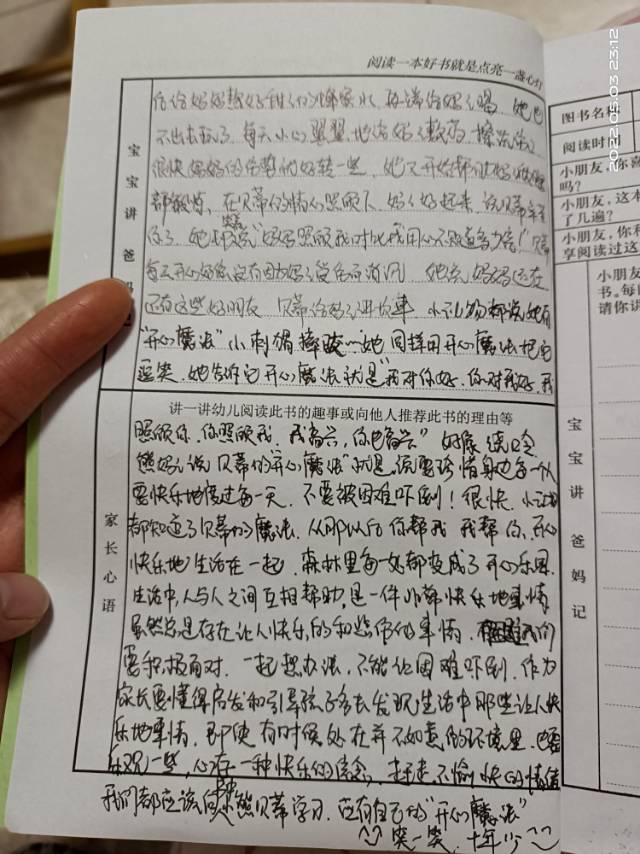 阅读一本好书就是点亮一盏心灯
宝宝讲爸妈
后给妈妈熬好甜了的蜂蜜水,再端给妈妈喝
不出去玩了,每天小心翼翼地给妈妈敷药
很快妈妈的伤势有好转一些,她又开始
在贝蒂的精心照顾下,妈妈好起来
你了,她却说"妈妈照顾我时比我用心不知道多少倍!
每天开心
还有这些好朋友 贝蒂给妈妈讲故事 小动物都说她有
"开心魔法"小刺猬摔跤 她同样用开心魔法把它
逗笑,她告诉它开心魔法就是"我对你好,你对我好,我
讲一讲幼儿阅读此书的趣事或向他人推荐此书的理由等
家长心语
照顾你,你照顾我,我高兴,你也高兴"好像绕口令
熊妈妈说贝蒂的"开心魔法"就是说要珍惜身边每一个人
要快乐地度过每一天,不要被困难吓倒!很快,小动物
都知道了贝蒂的魔法,从那以后你帮我 我帮你,开心
快乐地生活在一起,森林里每一处都变成了开心乐园.
生活中,人与人之间互相帮助,是一件非常快乐地事情
虽然总是存在让人快乐的和悲伤的事情,我们
要积极面对,一起想办法,不能让困难吓倒,作为
家长要懂得启发和引导孩子多去发现生活中那些让人快
乐地事情,即使有时候处在并不如意的环境里,也要
乐观一些,心存一种快乐的信念,赶走不愉快的情绪
我们都应该向小熊贝蒂学习,应有自己的"开心魔法"
笑一笑,十年少
图书名称
阅读时间
小朋友,你喜
吗?
小朋友,这本
了几遍?
小朋友,你和
享阅读过这
小朋友
书。每
请你讲
宝宝讲爸妈记
2022.05.03 23:12